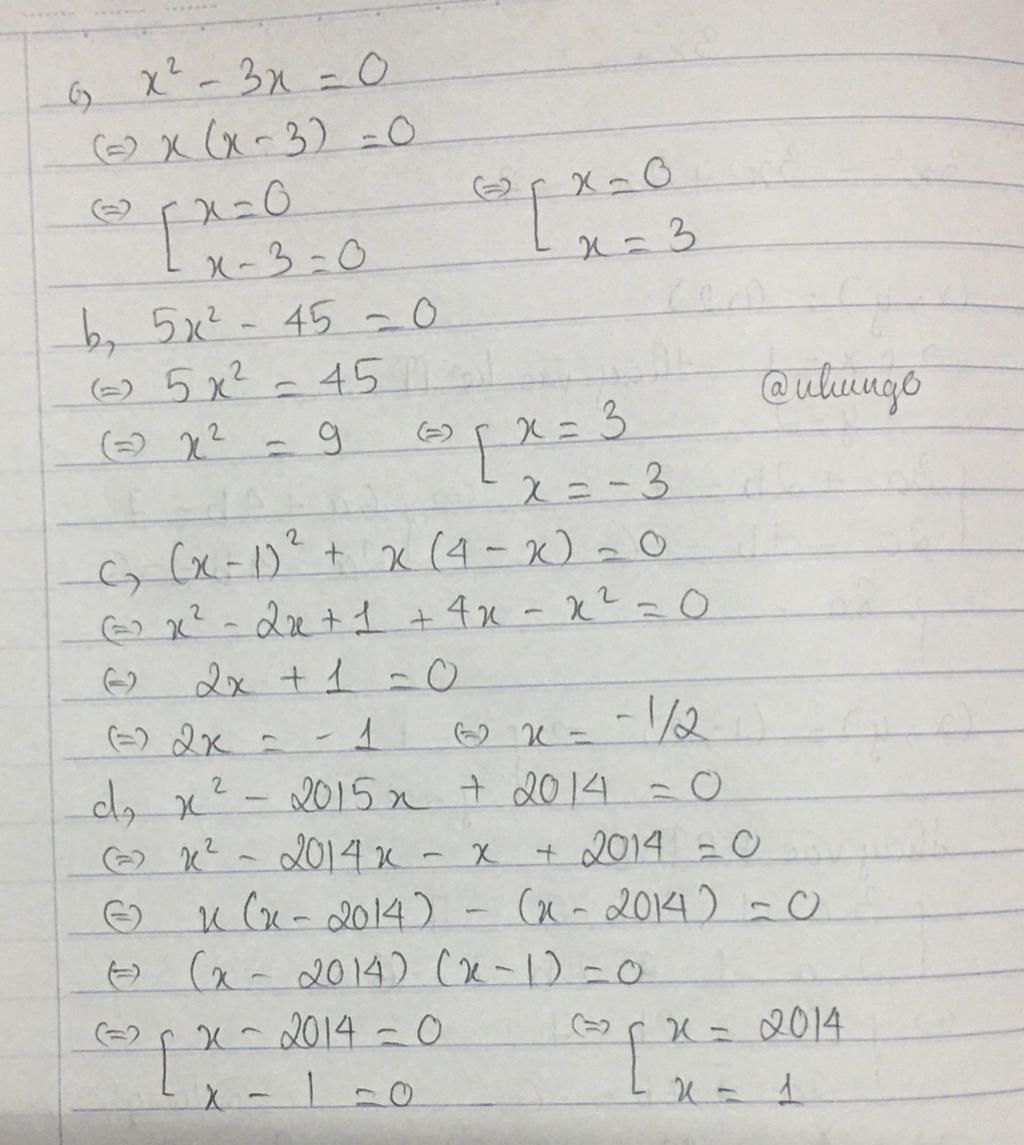 a, x² - 3x = 0
⇔ x (x - 3) = 0
⇔ [ x = 0 ⇔ [ x = 0
x - 3 = 0 x = 3
b, 5x² - 45 = 0
⇔ 5x² = 45
@nhungo
⇔ x² = 9 ⇔ [ x = 3
x = -3
c, (x - 1)² + x (4 - x) = 0
⇔ x² - 2x + 1 + 4x - x² = 0
⇔ 2x + 1 = 0
⇔ 2x = -1 ⇔ x = -1/2
d, x² - 2015x + 2014 = 0
⇔ x² - 2014x - x + 2014 = 0
⇔ x (x - 2014) - (x - 2014) = 0
⇔ (x - 2014) (x - 1) = 0
⇔ [ x - 2014 = 0 ⇔ [ x = 2014
x - 1 = 0 x = 1